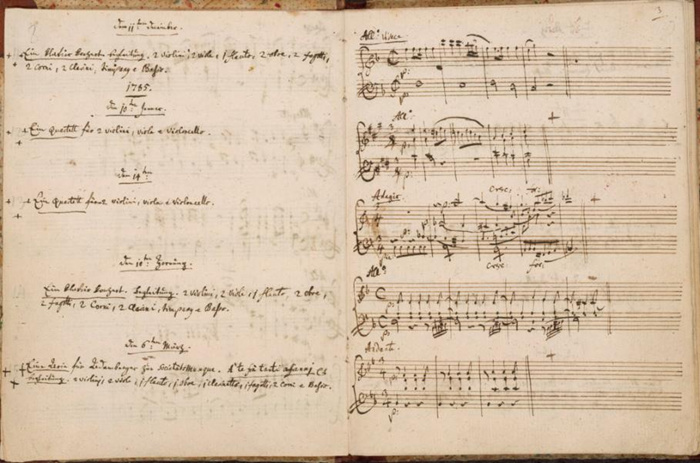 den 11:ten Decembr.
Ein Klavier Konzert. Begleitung. 2 violini, 2 viole, 1 flauto, 2 oboe, 2 fagotti,
2 Corni, 2 Clarini, timpany e Baſso.
1785.
den 10:ten Jenner.
Ein Quartett für 2 violini, viola e violoncello.
den 14:ten
Ein Quartett für 2 violini, viola e violoncello.
den 10:ten Hornung.
Ein Klavier Konzert. Begleitung. 2 violini, 2 viole, 1 flauto, 2 oboe
2 fagotti, 2 Corni, 2 Clarini, timpany e Baſso.
den 6:ten März.
Eine Arie für Adamberger zur Societäts Musique. A te fra tanti affanni &c
Begleitung. 2 violini, 2 viole, 1 flauto, 1 oboe, 1 clarinetto, 1 fagotto, 2 Corni e Baſso.
3
All:o vivace
p:
All:o
p:
Adagio
Cresc: for:
p:
Cresc: for:
All:o
p:
Andante
p: